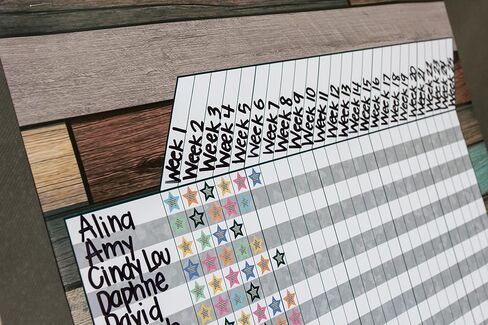 Week 1
Week 2
Week 3
Week 4
Week 5
Week 6
Week 7
Week 8
Week 9
Week 10
Week 11
Week 12
Week 13
Week 14
Week 15
Week 16
Week 17
Week 18
Week 19
Week 20
Alina
Amy
Cindy Lou
Daphne
David